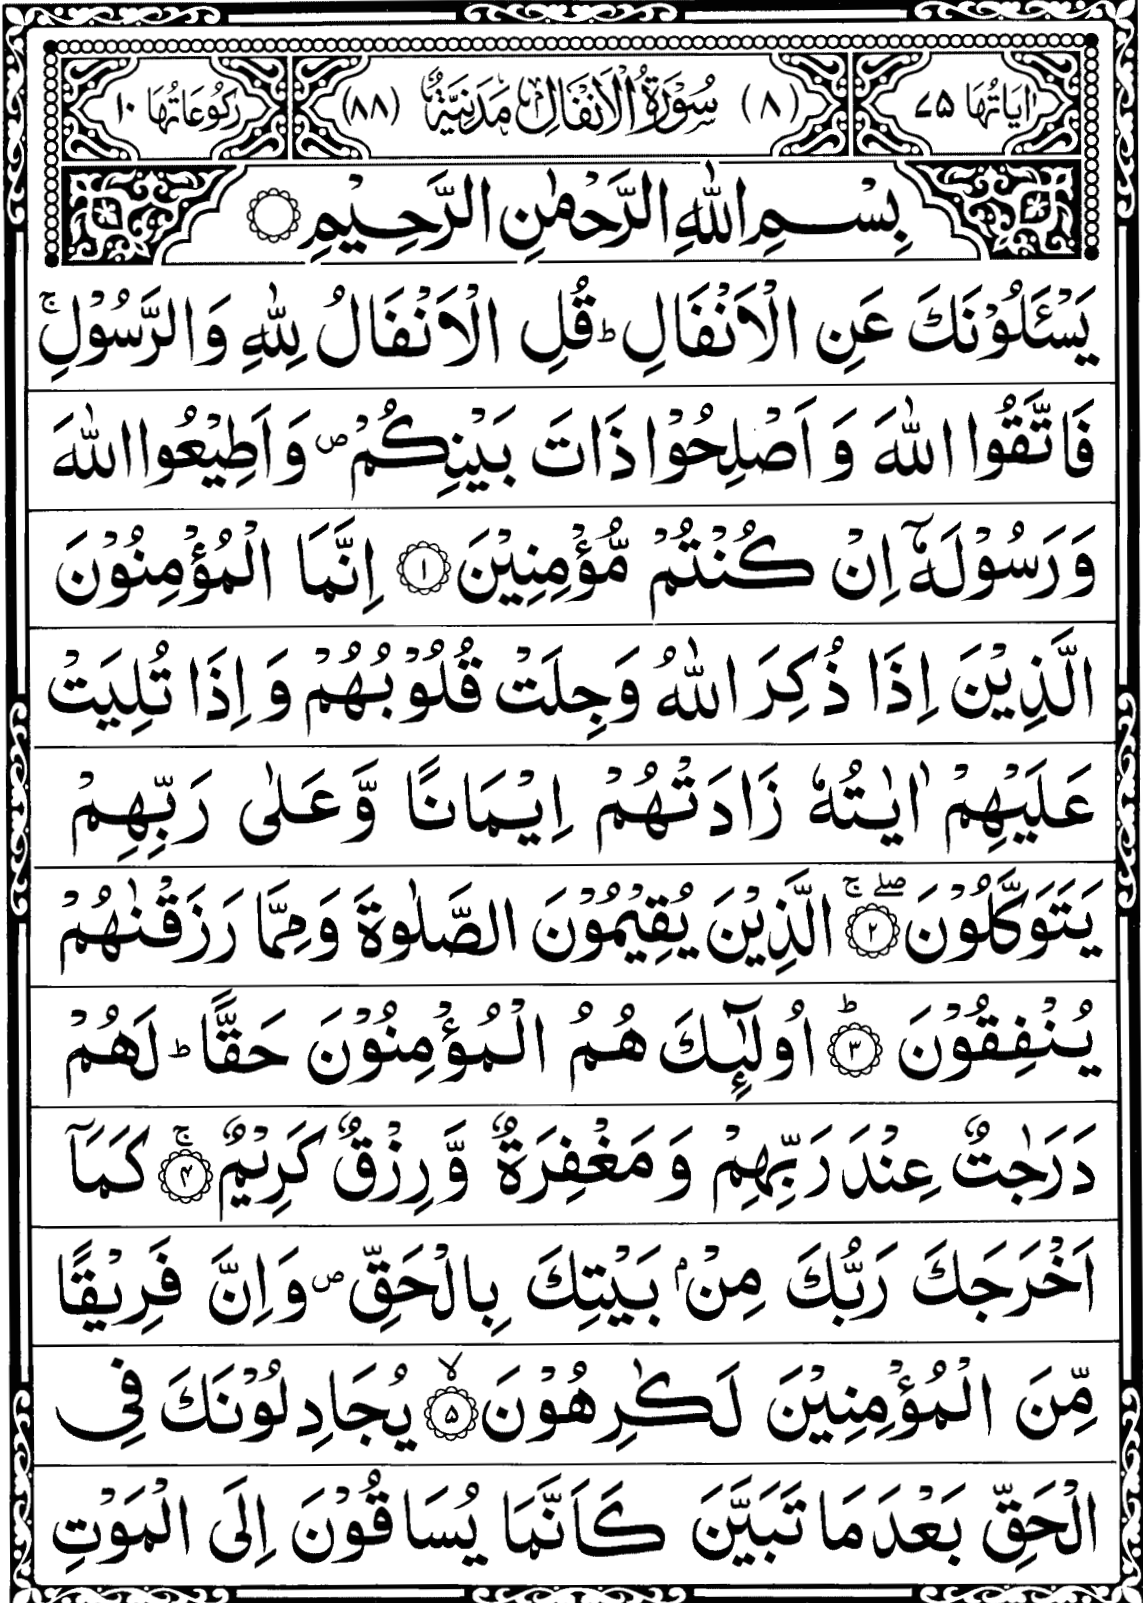 اٰیَاتُهَا ۷۵ (۸) سُوْرَةُ الْاَنْفَالِ مَدَنِیَّةٌ (۸۸) رُکُوْعَاتُهَا ۱۰
بِسْمِ اللّٰهِ الرَّحْمٰنِ الرَّحِیْمِ ○
یَسْـَٔلُوْنَكَ عَنِ الْاَنْفَالِ ؕ قُلِ الْاَنْفَالُ لِلّٰهِ وَالرَّسُوْلِ ۚ
فَاتَّقُوا اللّٰهَ وَ اَصْلِحُوْا ذَاتَ بَیْنِكُمْ ۪ وَ اَطِیْعُوا اللّٰهَ
وَ رَسُوْلَهٗۤ اِنْ كُنْتُمْ مُّؤْمِنِیْنَ ۱ اِنَّمَا الْمُؤْمِنُوْنَ
الَّذِیْنَ اِذَا ذُكِرَ اللّٰهُ وَجِلَتْ قُلُوْبُهُمْ وَ اِذَا تُلِیَتْ
عَلَیْهِمْ اٰیٰتُهٗ زَادَتْهُمْ اِیْمَانًا وَّ عَلٰی رَبِّهِمْ
یَتَوَكَّلُوْنَ ۲ ۖۚ الَّذِیْنَ یُقِیْمُوْنَ الصَّلٰوةَ وَ مِمَّا رَزَقْنٰهُمْ
یُنْفِقُوْنَ ۳ ؕ اُولٰٓىِٕكَ هُمُ الْمُؤْمِنُوْنَ حَقًّا ؕ لَهُمْ
دَرَجٰتٌ عِنْدَ رَبِّهِمْ وَ مَغْفِرَةٌ وَّ رِزْقٌ كَرِیْمٌ ۴ ۚ كَمَاۤ
اَخْرَجَكَ رَبُّكَ مِنْۢ بَیْتِكَ بِالْحَقِّ ۪ وَ اِنَّ فَرِیْقًا
مِّنَ الْمُؤْمِنِیْنَ لَكٰرِهُوْنَ ۵ ۙ یُجَادِلُوْنَكَ فِی
الْحَقِّ بَعْدَ مَا تَبَیَّنَ كَاَنَّمَا یُسَاقُوْنَ اِلَی الْمَوْتِ